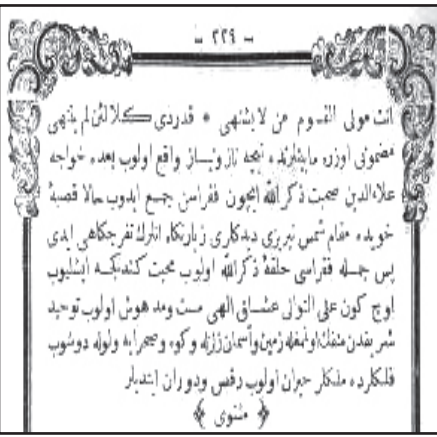 — ٢٢٩ —
انت مولی القوم من لا یشتهی * قدردی كلا لئن لم ینتهی
مضمونی اوزره مابینلرنده نیجه ناز ونیاز واقع اولوب بعده خواجه
علاءالدین صحبت ذکر الله ایچون فقراسن جمع ایدوب حالا قصبۀ
خویده مقام شمس تبریزی دیدکلری زیارتکاه انلرك تفرجکاهی ایدی
پس جمله فقراسی حلقۀ ذکر الله اولوب محبت کندیکه ایشلیوب
اوچ کون علی التوالی عشاق الهی مست ومدهوش اولوب توحید
شریفدن منفك اولمغله زمین وآسمان زلزله وکوه وصحرایه ولوله دوشوب
فلکلرده ملکلر حیران اولوب رقص ودوران ایتدیلر
﴿ مثنوی ﴾